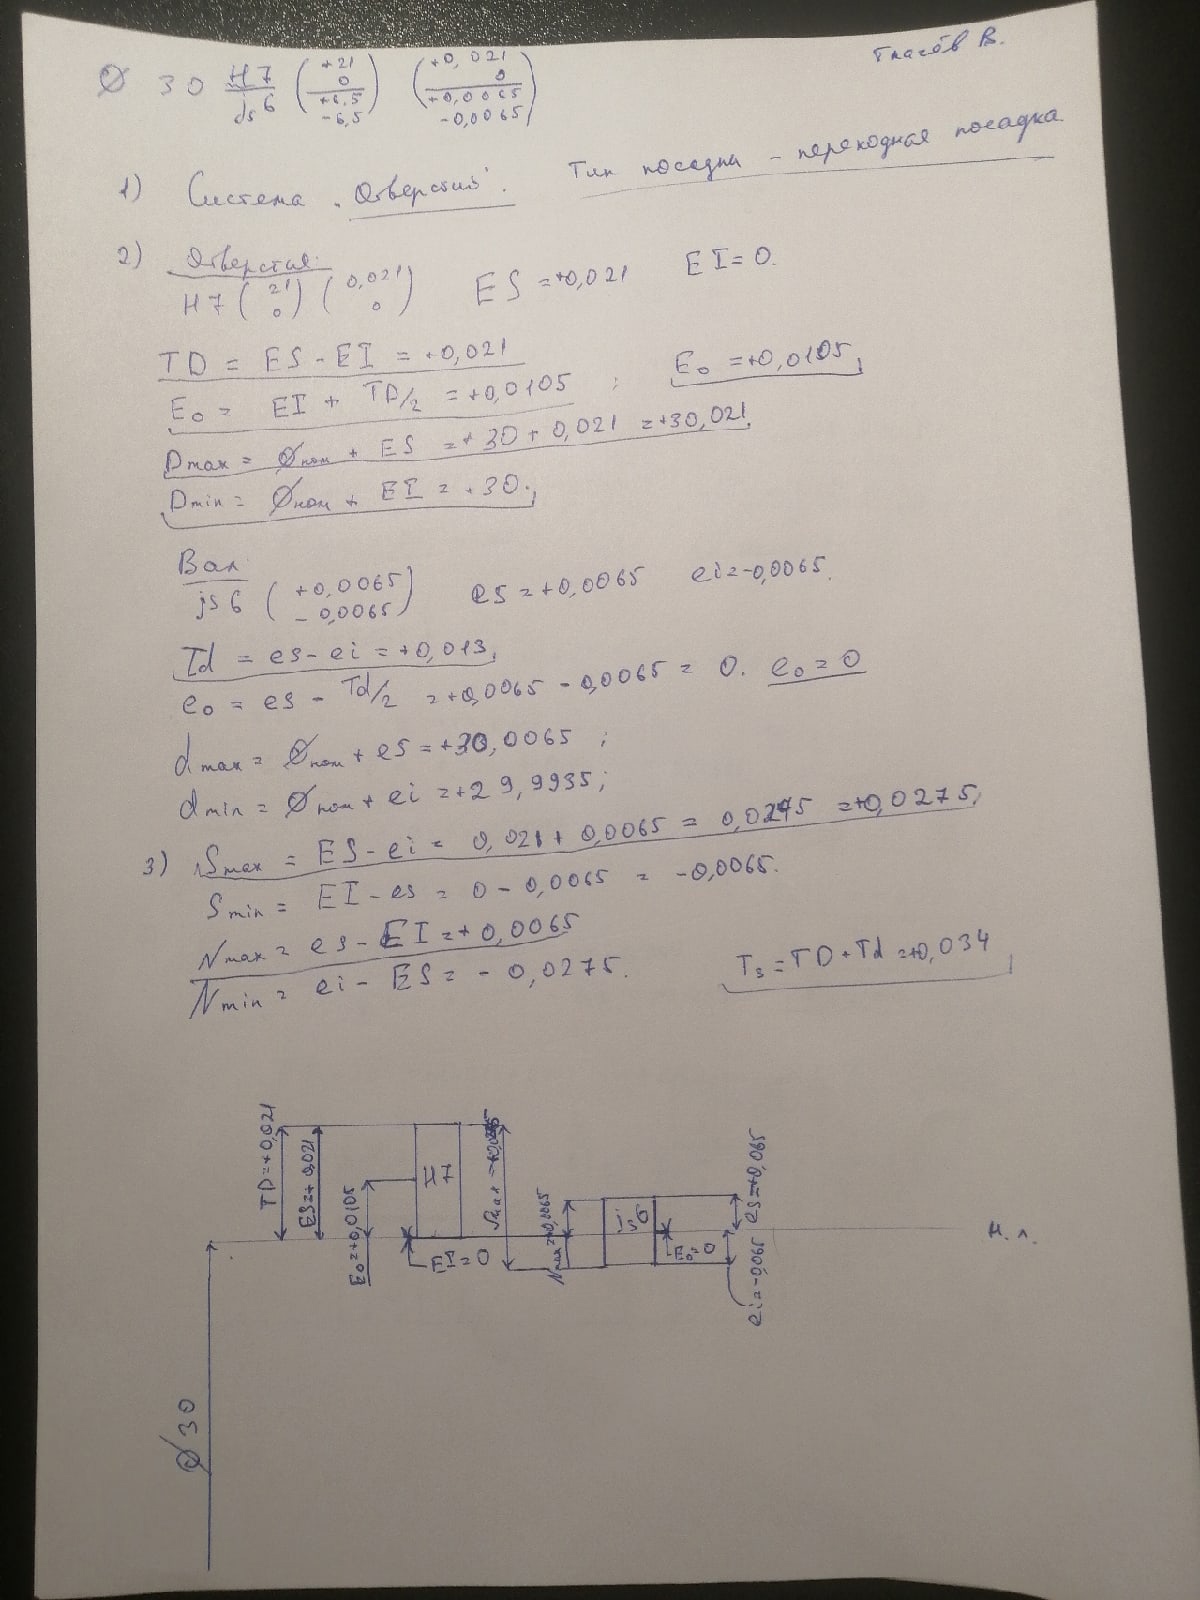 Тласов В.
∅ 30 H7/js6 (+21 0 / +6,5 -6,5) (+0,021 0 / +0,0065 -0,0065)
1) Система "Отверстий". Тип посадки - переходная посадка.
2) Отверстие:
H7 (21 0) (0,021 0) ES = +0,021 EI = 0.
TD = ES - EI = +0,021
E₀ = EI + TD/2 = +0,0105 ; E₀ = +0,0105;
Dmax = ∅ном + ES = +30 + 0,021 = +30,021.
Dmin = ∅ном + EI = +30.;
Вал
js6 (+0,0065 -0,0065) es = +0,0065 ei = -0,0065.
Td = es - ei = +0,013;
e₀ = es - Td/2 = +0,0065 - 0,0065 = 0. e₀ = 0
dmax = ∅ном + es = +30,0065 ;
dmin = ∅ном + ei = +29,9935;
3) Smax = ES - ei = 0,021 + 0,0065 = 0,0275 = +0,0275;
Smin = EI - es = 0 - 0,0065 = -0,0065.
Nmax = es - EI = +0,0065
Nmin = ei - ES = -0,0275.
Ts = TD + Td = +0,034
TD = +0,021
ES = +0,021
E₀ = +0,0105
H7
EI = 0
Smax =
Nmax = +0,0065
js6
E₀ = 0
es = +0,065
ei = -0,065
н.л.
∅30